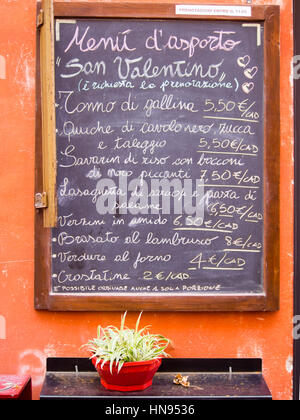 PRENOTAZIONI ENTRO IL 11/02
Menú d'asporto
"San Valentino"
(è richiesta la prenotazione)
Tonno di gallina 5,50 €/CAD
Quiche di cavolo nero, zucca
e taleggio 5,50 €/CAD
Savarin di riso con bocconi
di mare piccanti 7,50 €/CAD
Lasaghetta di carciofi e pasta di
salame 6,50 €/CAD
Verzini in umido 6,50 €/CAD
• Brasato al lambrusco 8€/CAD
• Verdure al forno 4€/CAD
• Crostatine 2€/CAD
È POSSIBILE ORDINARE ANCHE 1 SOLA PORZIONE
alamy
Image ID: HN9536
www.alamy.com